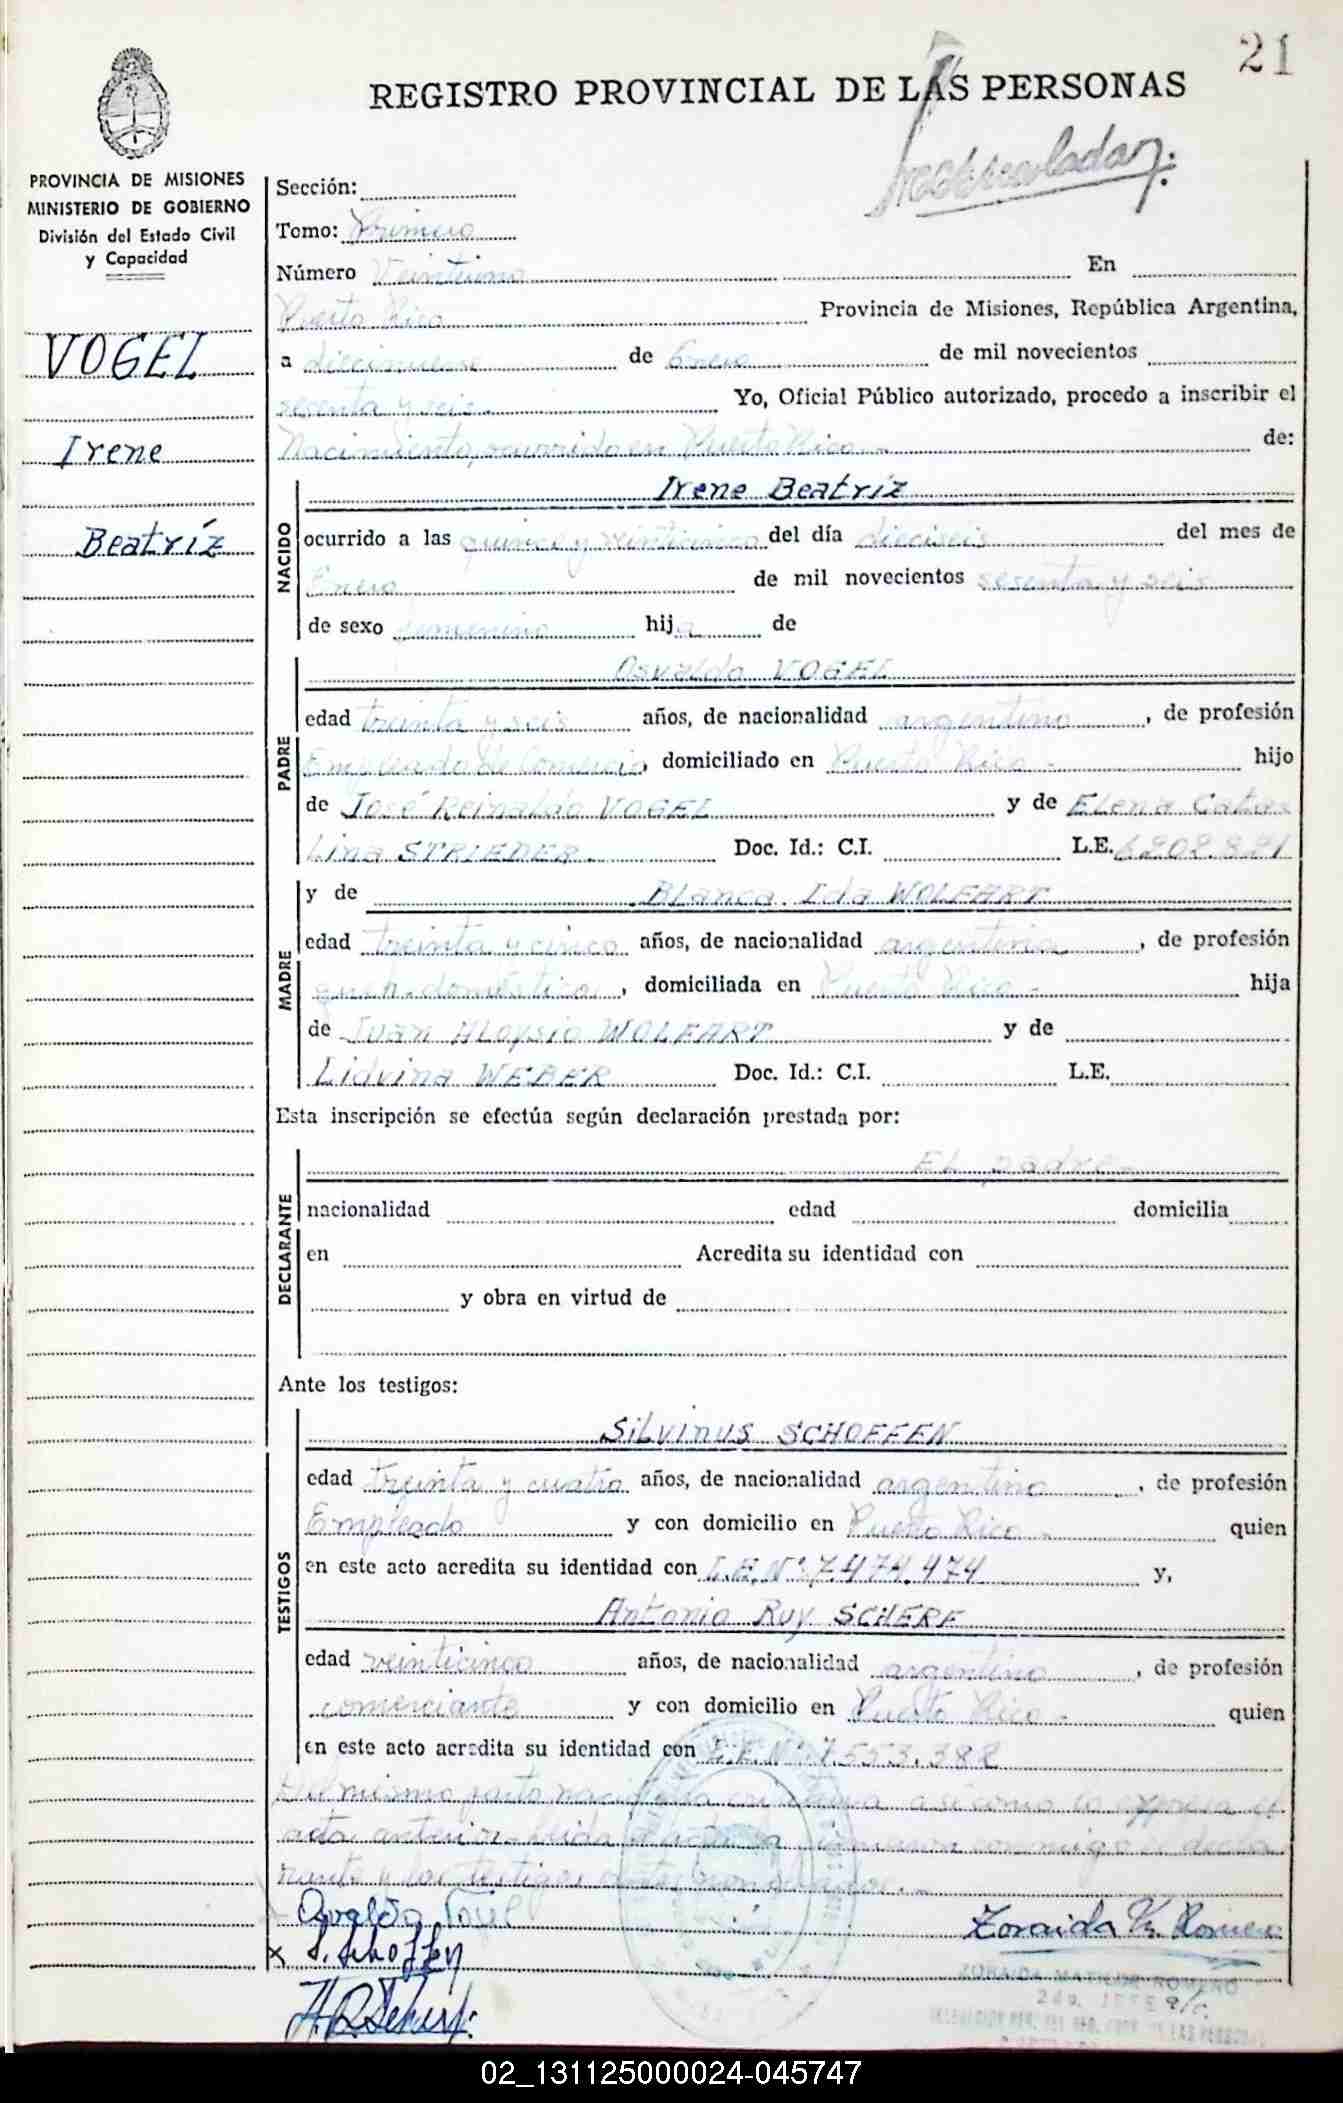 21
REGISTRO PROVINCIAL DE LAS PERSONAS
PROVINCIA DE MISIONES
MINISTERIO DE GOBIERNO
División del Estado Civil
y Capacidad
VOGEL
Irene
Beatríz
Sección:
Tomo: Primero
Número Veintiuno En
Puerto Rico Provincia de Misiones, República Argentina,
a diecinueve de Enero de mil novecientos
sesenta y seis Yo, Oficial Público autorizado, procedo a inscribir el
Nacimiento, ocurrido en Puerto Rico.- de:
NACIDO
Irene Beatríz
ocurrido a las quince y veinticinco del día dieciseis del mes de
Enero de mil novecientos sesenta y seis
de sexo femenino hija de
PADRE
Osvaldo VOGEL
edad treinta y seis años, de nacionalidad argentino, de profesión
Empleado de Comercio, domiciliado en Puerto Rico - hijo
de José Reinaldo VOGEL y de Elena Cata=
Lina STRIEDER. Doc. Id.: C.I. L.E.
MADRE
y de Blanca Ida WOLFART
edad treinta y cinco años, de nacionalidad argentina, de profesión
queh. doméstico, domiciliada en Puerto Rico - hija
de Juan Aloysio WOLFART y de
Lidvina WEBER Doc. Id.: C.I. L.E.
Esta inscripción se efectúa según declaración prestada por:
DECLARANTE
El padre.-
nacionalidad edad domicilia
en Acredita su identidad con
y obra en virtud de
Ante los testigos:
TESTIGOS
Silvinus SCHOFFEN
edad treinta y cuatro años, de nacionalidad argentino, de profesión
Empleado y con domicilio en Puerto Rico - quien
en este acto acredita su identidad con L.E.Nº: 7.474.474 y,
Antonio Ruy SCHERF
edad veinticinco años, de nacionalidad argentino, de profesión
comerciante y con domicilio en Puerto Rico - quien
en este acto acredita su identidad con L.E.Nº: 7.553.382
Del mismo parto nació otra criatura así como lo expresa el
acta anterior. Leida el acta la firmaron conmigo el decla
rante y los testigos antes nombrados.-
S. Schoffen
A.R. Scherf
Zoraida M. Romero
ZORAIDA MATILDE ROMERO
02_131125000024-045747